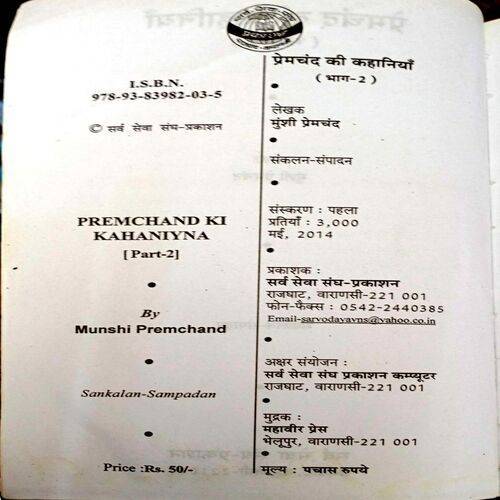 I.S.B.N.
978-93-83982-03-5
© सर्व सेवा संघ-प्रकाशन
PREMCHAND KI
KAHANIYNA
[ Part-2]
By
Munshi Premchand
Sankalan-Sampadan
Price :Rs. 50/-
प्रेमचंद की कहानियाँ
( भाग-2 )
लेखक
मुंशी प्रेमचंद
संकलन-संपादन
संस्करण : पहला
प्रतियाँ : 3,000
मई, 2014
प्रकाशक :
सर्व सेवा संघ-प्रकाशन
राजघाट, वाराणसी-221 001
फोन-फैक्स : 0542-2440385
Email-sarvodayavns@yahoo.co.in
अक्षर संयोजन :
सर्व सेवा संघ प्रकाशन कम्प्यूटर
राजघाट, वाराणसी-221 001
मुद्रक :
महावीर प्रेस
भेलूपुर, वाराणसी-221 001
मूल्य : पचास रुपये